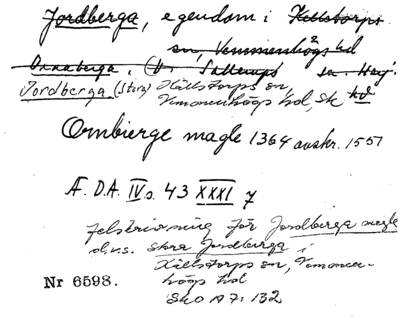 Jordberga, egendom i Källstorps
sn, Vemmenhögs hd
Ornaberga. (V. Sallerups sn. Harj. hd
Jordberga (Stora) Källstorps sn,
Vemmenhögs hd, Sk
Ornbierge magle 1364 avskr. 1551
Æ. D.A. IV s. 43 XXXI 7
felskrivning för Jordberga magle
d.v.s. Stora Jordberga i
Källstorps sn, Vemmen-
högs hd
Nr 6598.
SkO A7: 132